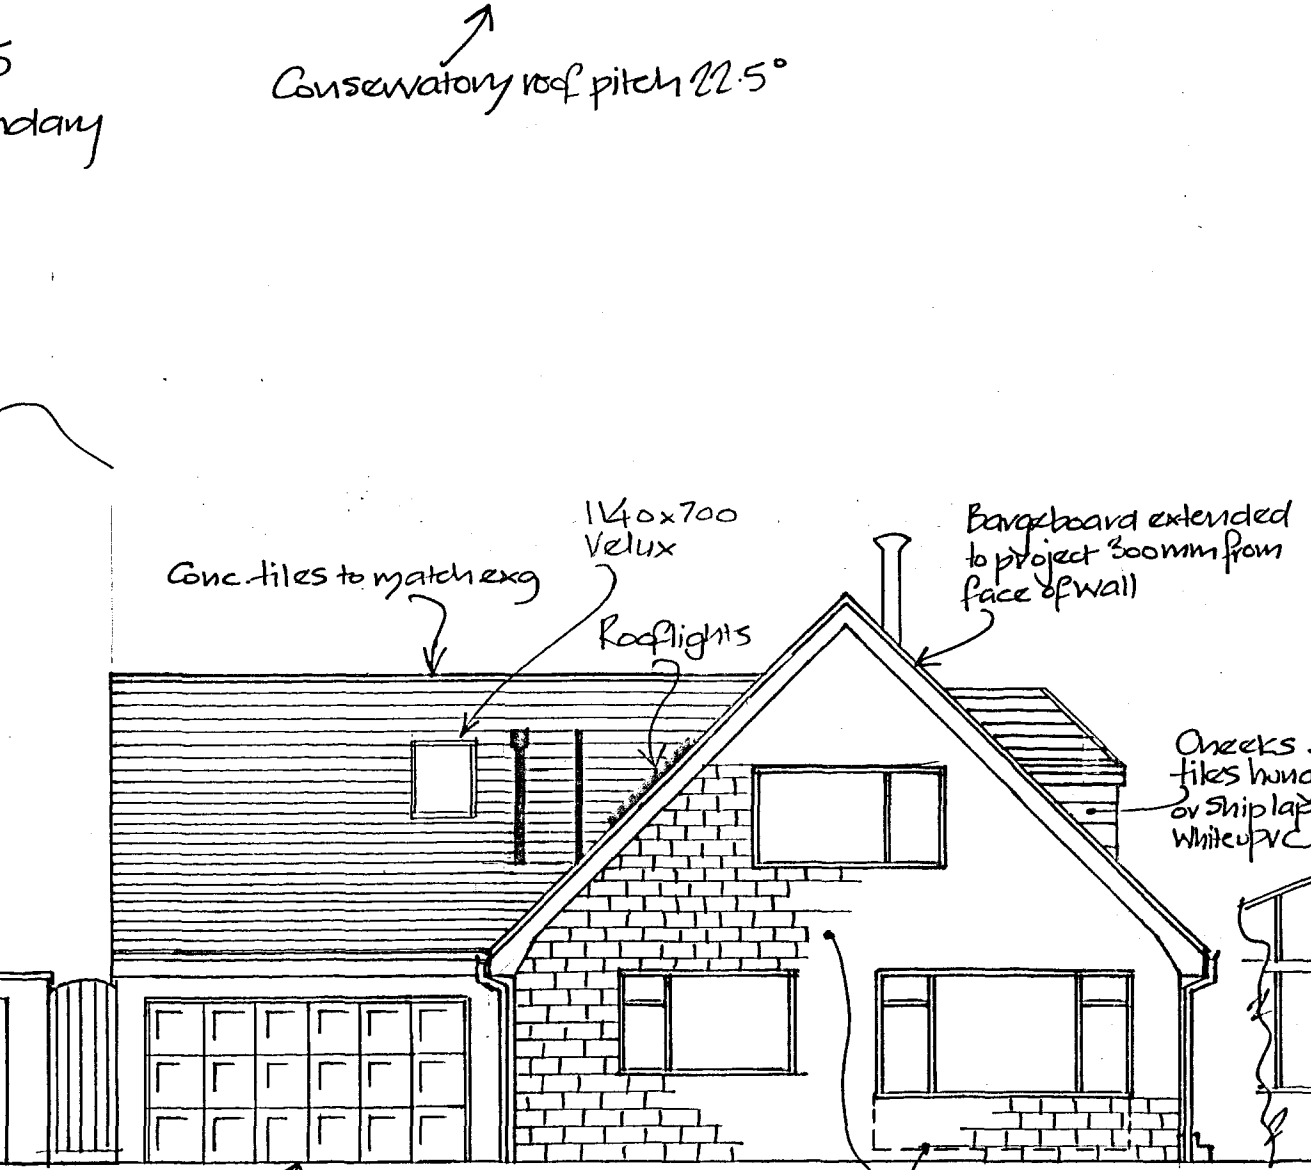 5
ndary
Conservatory roof pitch 22.5°
Conc. tiles to match exg
1140x700
Velux
Rooflights
Bargeboard extended
to project 300mm from
face of wall
Cheeks
tiles hung
or shiplap
white uPVC